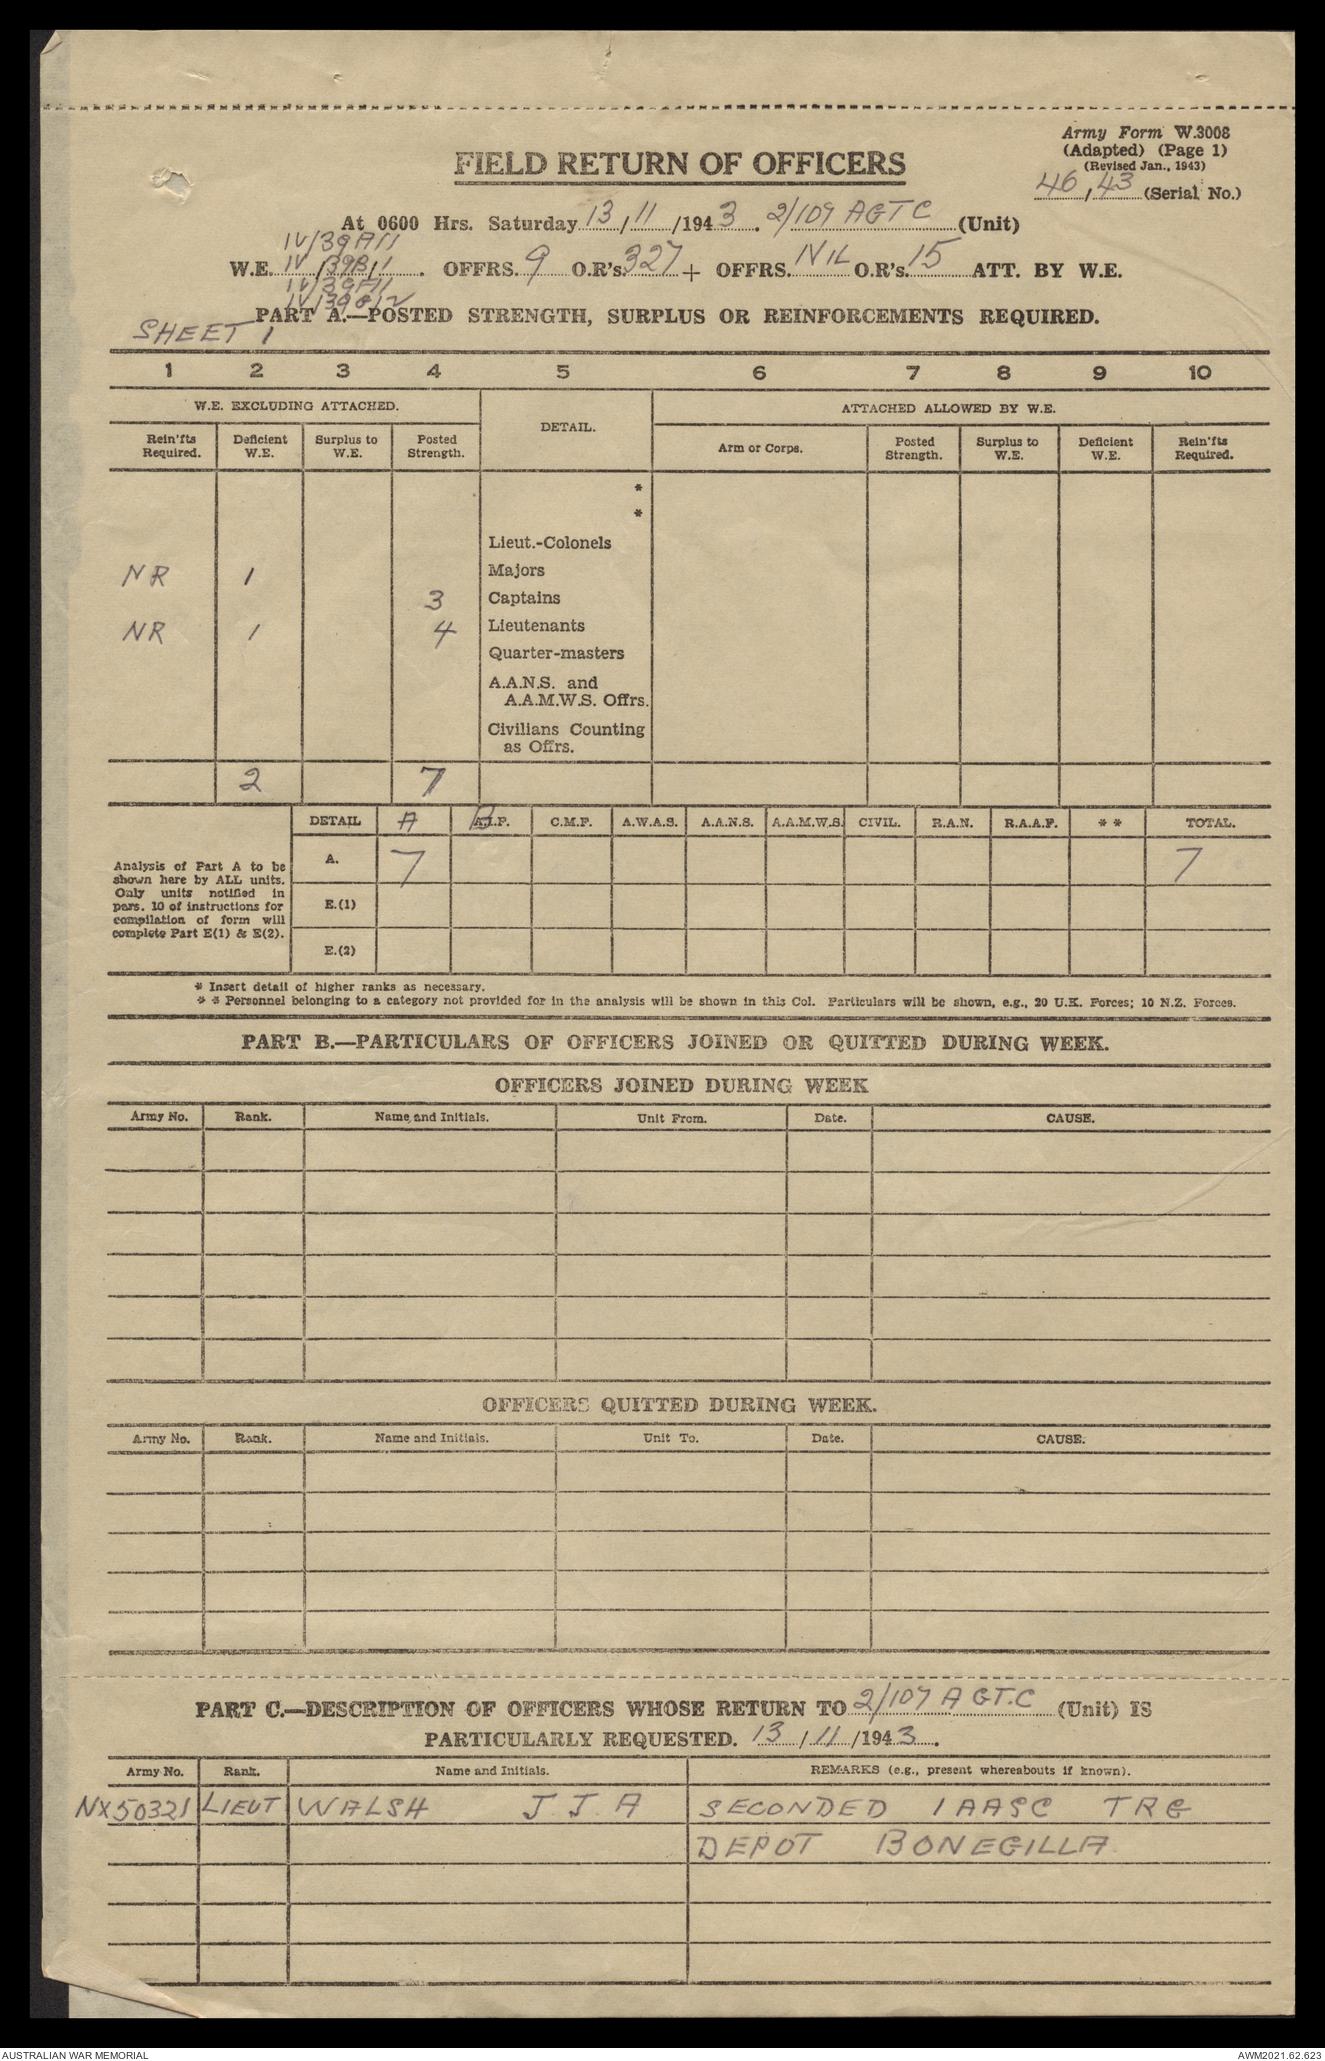 Army Form W.3008
(Adapted) (Page 1)
(Revised Jan., 1943)
46/43 (Serial No.)
FIELD RETURN OF OFFICERS
At 0600 Hrs. Saturday 13/11/1943. 2/109 AGTC (Unit)
IV/39A/1
W.E. IV/39B/1. OFFRS. 9 O.R's. 327 + OFFRS. NIL O.R's. 15 ATT. BY W.E.
IV/39
IV/39
PART A.—POSTED STRENGTH, SURPLUS OR REINFORCEMENTS REQUIRED.
SHEET 1
1 2 3 4 5 6 7 8 9 10
W.E. EXCLUDING ATTACHED. DETAIL. ATTACHED ALLOWED BY W.E.
Rein'fts Required. Deficient W.E. Surplus to W.E. Posted Strength. Arm or Corps. Posted Strength. Surplus to W.E. Deficient W.E. Rein'fts Required.
*
*
Lieut.-Colonels
NR 1 Majors
3 Captains
NR 1 4 Lieutenants
Quarter-masters
A.A.N.S. and
A.A.M.W.S. Offrs.
Civilians Counting
as Offrs.
2 7
DETAIL A B A.I.F. C.M.F. A.W.A.S. A.A.N.S. A.A.M.W.S. CIVIL. R.A.N. R.A.A.F. * * TOTAL.
Analysis of Part A to be
shown here by ALL units.
Only units notified in
para. 10 of instructions for
compilation of form will
complete Part E(1) & E(2).
A. 7 7
E.(1)
E.(2)
* Insert detail of higher ranks as necessary.
* * Personnel belonging to a category not provided for in the analysis will be shown in this Col. Particulars will be shown, e.g., 20 U.K. Forces; 10 N.Z. Forces.
PART B.—PARTICULARS OF OFFICERS JOINED OR QUITTED DURING WEEK.
OFFICERS JOINED DURING WEEK
Army No. Rank. Name and Initials. Unit From. Date. CAUSE.
OFFICERS QUITTED DURING WEEK.
Army No. Rank. Name and Initials. Unit To. Date. CAUSE.
PART C.—DESCRIPTION OF OFFICERS WHOSE RETURN TO 2/107 AGT.C (Unit) IS
PARTICULARLY REQUESTED. 13/11/1943.
Army No. Rank. Name and Initials. REMARKS (e.g., present whereabouts if known).
NX50321 LIEUT WALSH J J A SECONDED 1 AASC TRG
DEPOT BONEGILLA
AUSTRALIAN WAR MEMORIAL AWM2021.62.623